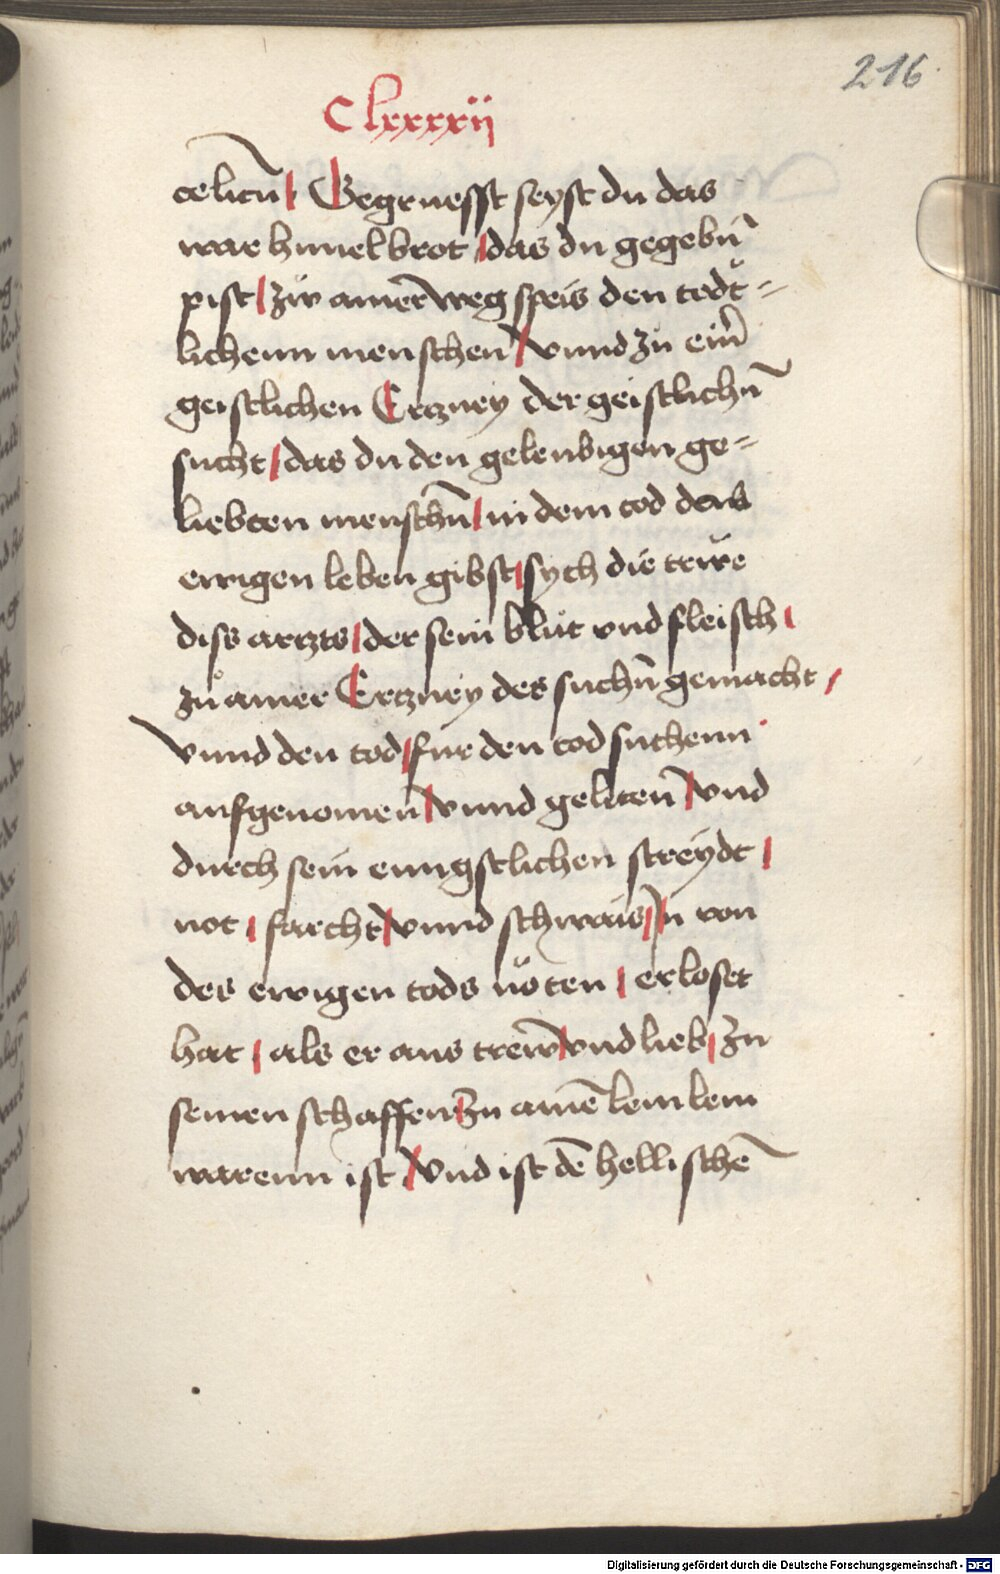 216
Clxxxxii
celicū | Gegruesst seyst du das
war himelbrot | das du gegebn̄
pist | zw ainer weg speis den tedt=
lichenn menschen | vnnd zu ein̄
geistlichen Ertzney der geistlichn̄
sucht | das du den geleubigen ge=
liebten menschn̄ | in dem tod das
ewigen leben gibst | sych die trewe
diss artzts | der sein blůt vnd fleisch |
zů ainer Ertzney des suchn̄ gemacht |
Vnnd den tod | fur den tod suchenn
aufgenomen̄ | vnnd geliten̄ | vnd
durch sein enngstlichen streydt |
not | farcht | vnnd schwais | n von
des ewigen tods nöten | erloset
hat | als er aus trew̄ | vnd lieb | zu
seinen schaffen | zu ainē lemlem
warenn ist | Vnd ist dē hellischē
Digitalisierung gefördert durch die Deutsche Forschungsgemeinschaft - DFG